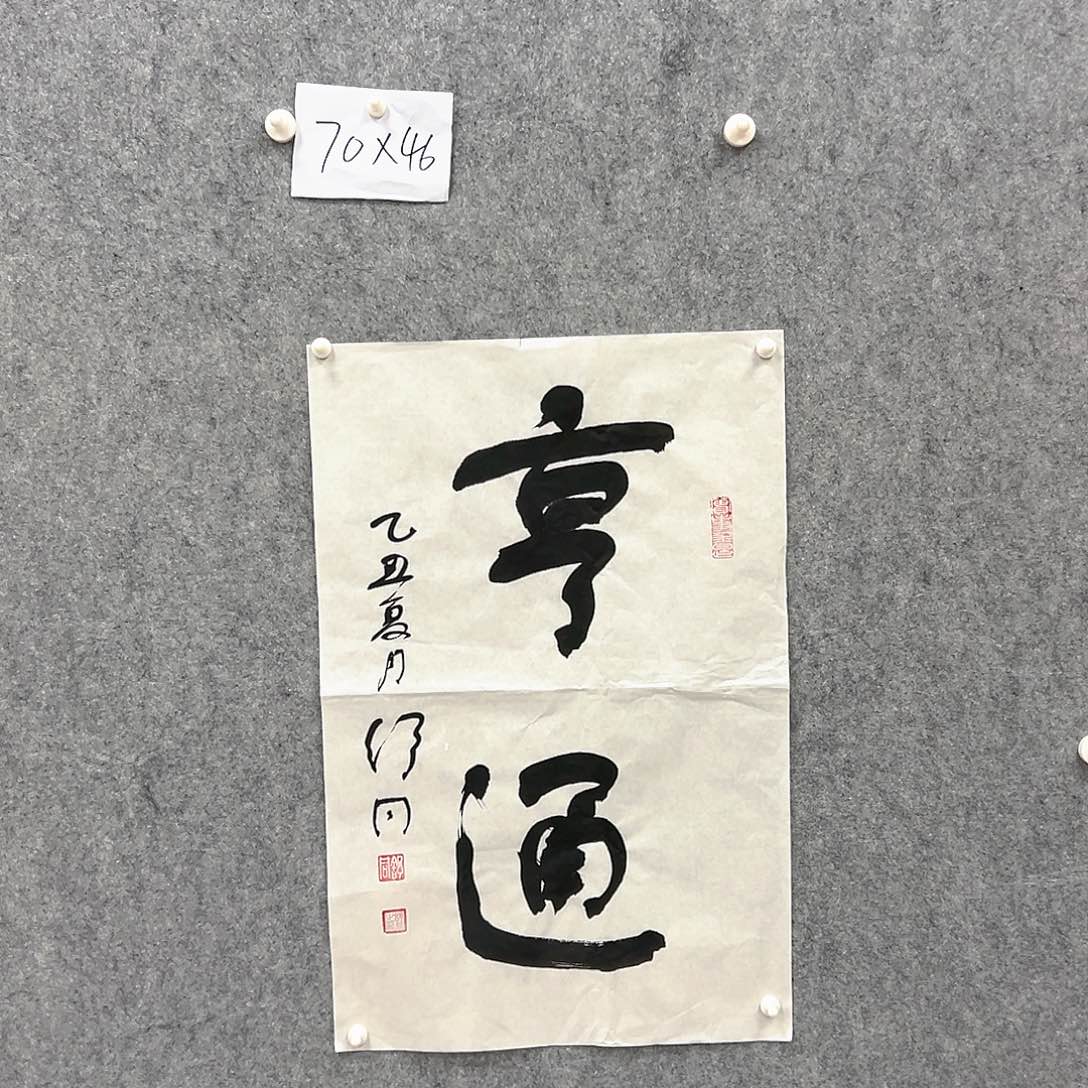 70×46
亨通
乙丑夏月
舒同